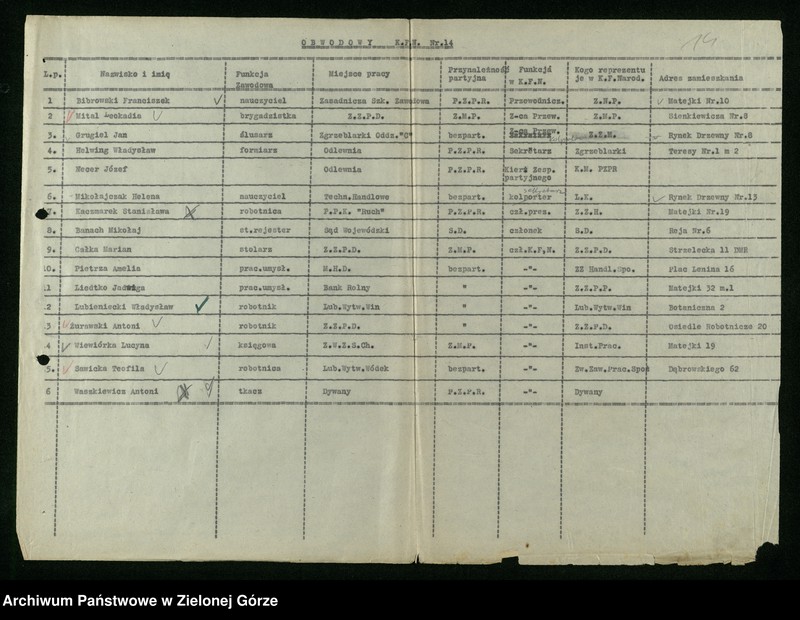 14
OBWODOWY K.F.N. Nr.14
L.p. Nazwisko i imię Funkcja Zawodowa Miejsce pracy Przynależność partyjna Funkcja w K.F.N. Kogo reprezentuje w K.F.Narod. Adres zamieszkania
1 Bibrowski Franciszek nauczyciel Zasadnicza Szk. Zawodowa P.Z.P.R. Przewodnicz. Z.N.P. Matejki Nr.10
2 Mital Leokadia brygadzistka Z.Z.P.D. Z.M.P. Z-ca Przew. Z.M.P. Sienkiewicza Nr.8
3. Grugiel Jan ślusarz Zgrzeblarki Oddz."C" bezpart. Z-ca Przew. Z.Z.M. Rynek Drzewny Nr.8
4. Helwing Władysław formierz Odlewnia P.Z.P.R. Sekretarz Zgrzeblarki Teresy Nr.1 m 2
5. Mecer Józef Odlewnia P.Z.P.R. Kier. Zesp. partyjnego K.M. PZPR
6. Mikołajczak Helena nauczyciel Techn.Handlowe bezpart. kolporter L.K. Rynek Drzewny Nr.13
7. Kaczmarek Stanisława robotnica P.P.K. "Ruch" P.Z.P.R. czł.prez. Z.Z.H. Matejki Nr.19
8. Banach Mikołaj st.rejester Sąd Wojewódzki S.D. członek S.D. Reja Nr.6
9. Całka Marian stolarz Z.Z.P.D. Z.M.P. czł.K.F.N. Z.Z.P.D. Strzelecka 11 DMR
10. Pietrza Amelia prac.umysł. M.H.D. bezpart. -"- ZZ Handl.Spo. Plac Lenina 16
11 Liedtke Jadwiga prac.umysł. Bank Rolny " -"- Z.Z.P.P. Matejki 32 m.1
12 Lubieniecki Władysław robotnik Lub.Wytw.Win " -"- Lub.Wytw.Win Botaniczna 2
13 Żurawski Antoni robotnik Z.Z.P.D. " -"- Z.Z.P.D. Osiedle Robotnicze 20
14 Wiewiórka Lucyna księgowa Z.W.Z.S.Ch. Z.M.P. -"- Inst.Prac. Matejki 19
15. Zawicka Teofila robotnica Lub.Wytw.Wódek bezpart. -"- Zw.Zaw.Prac.Spoż Dąbrowskiego 62
16 Waszkiewicz Antoni tkacz Dywany P.Z.P.R. -"- Dywany
Archiwum Państwowe w Zielonej Górze